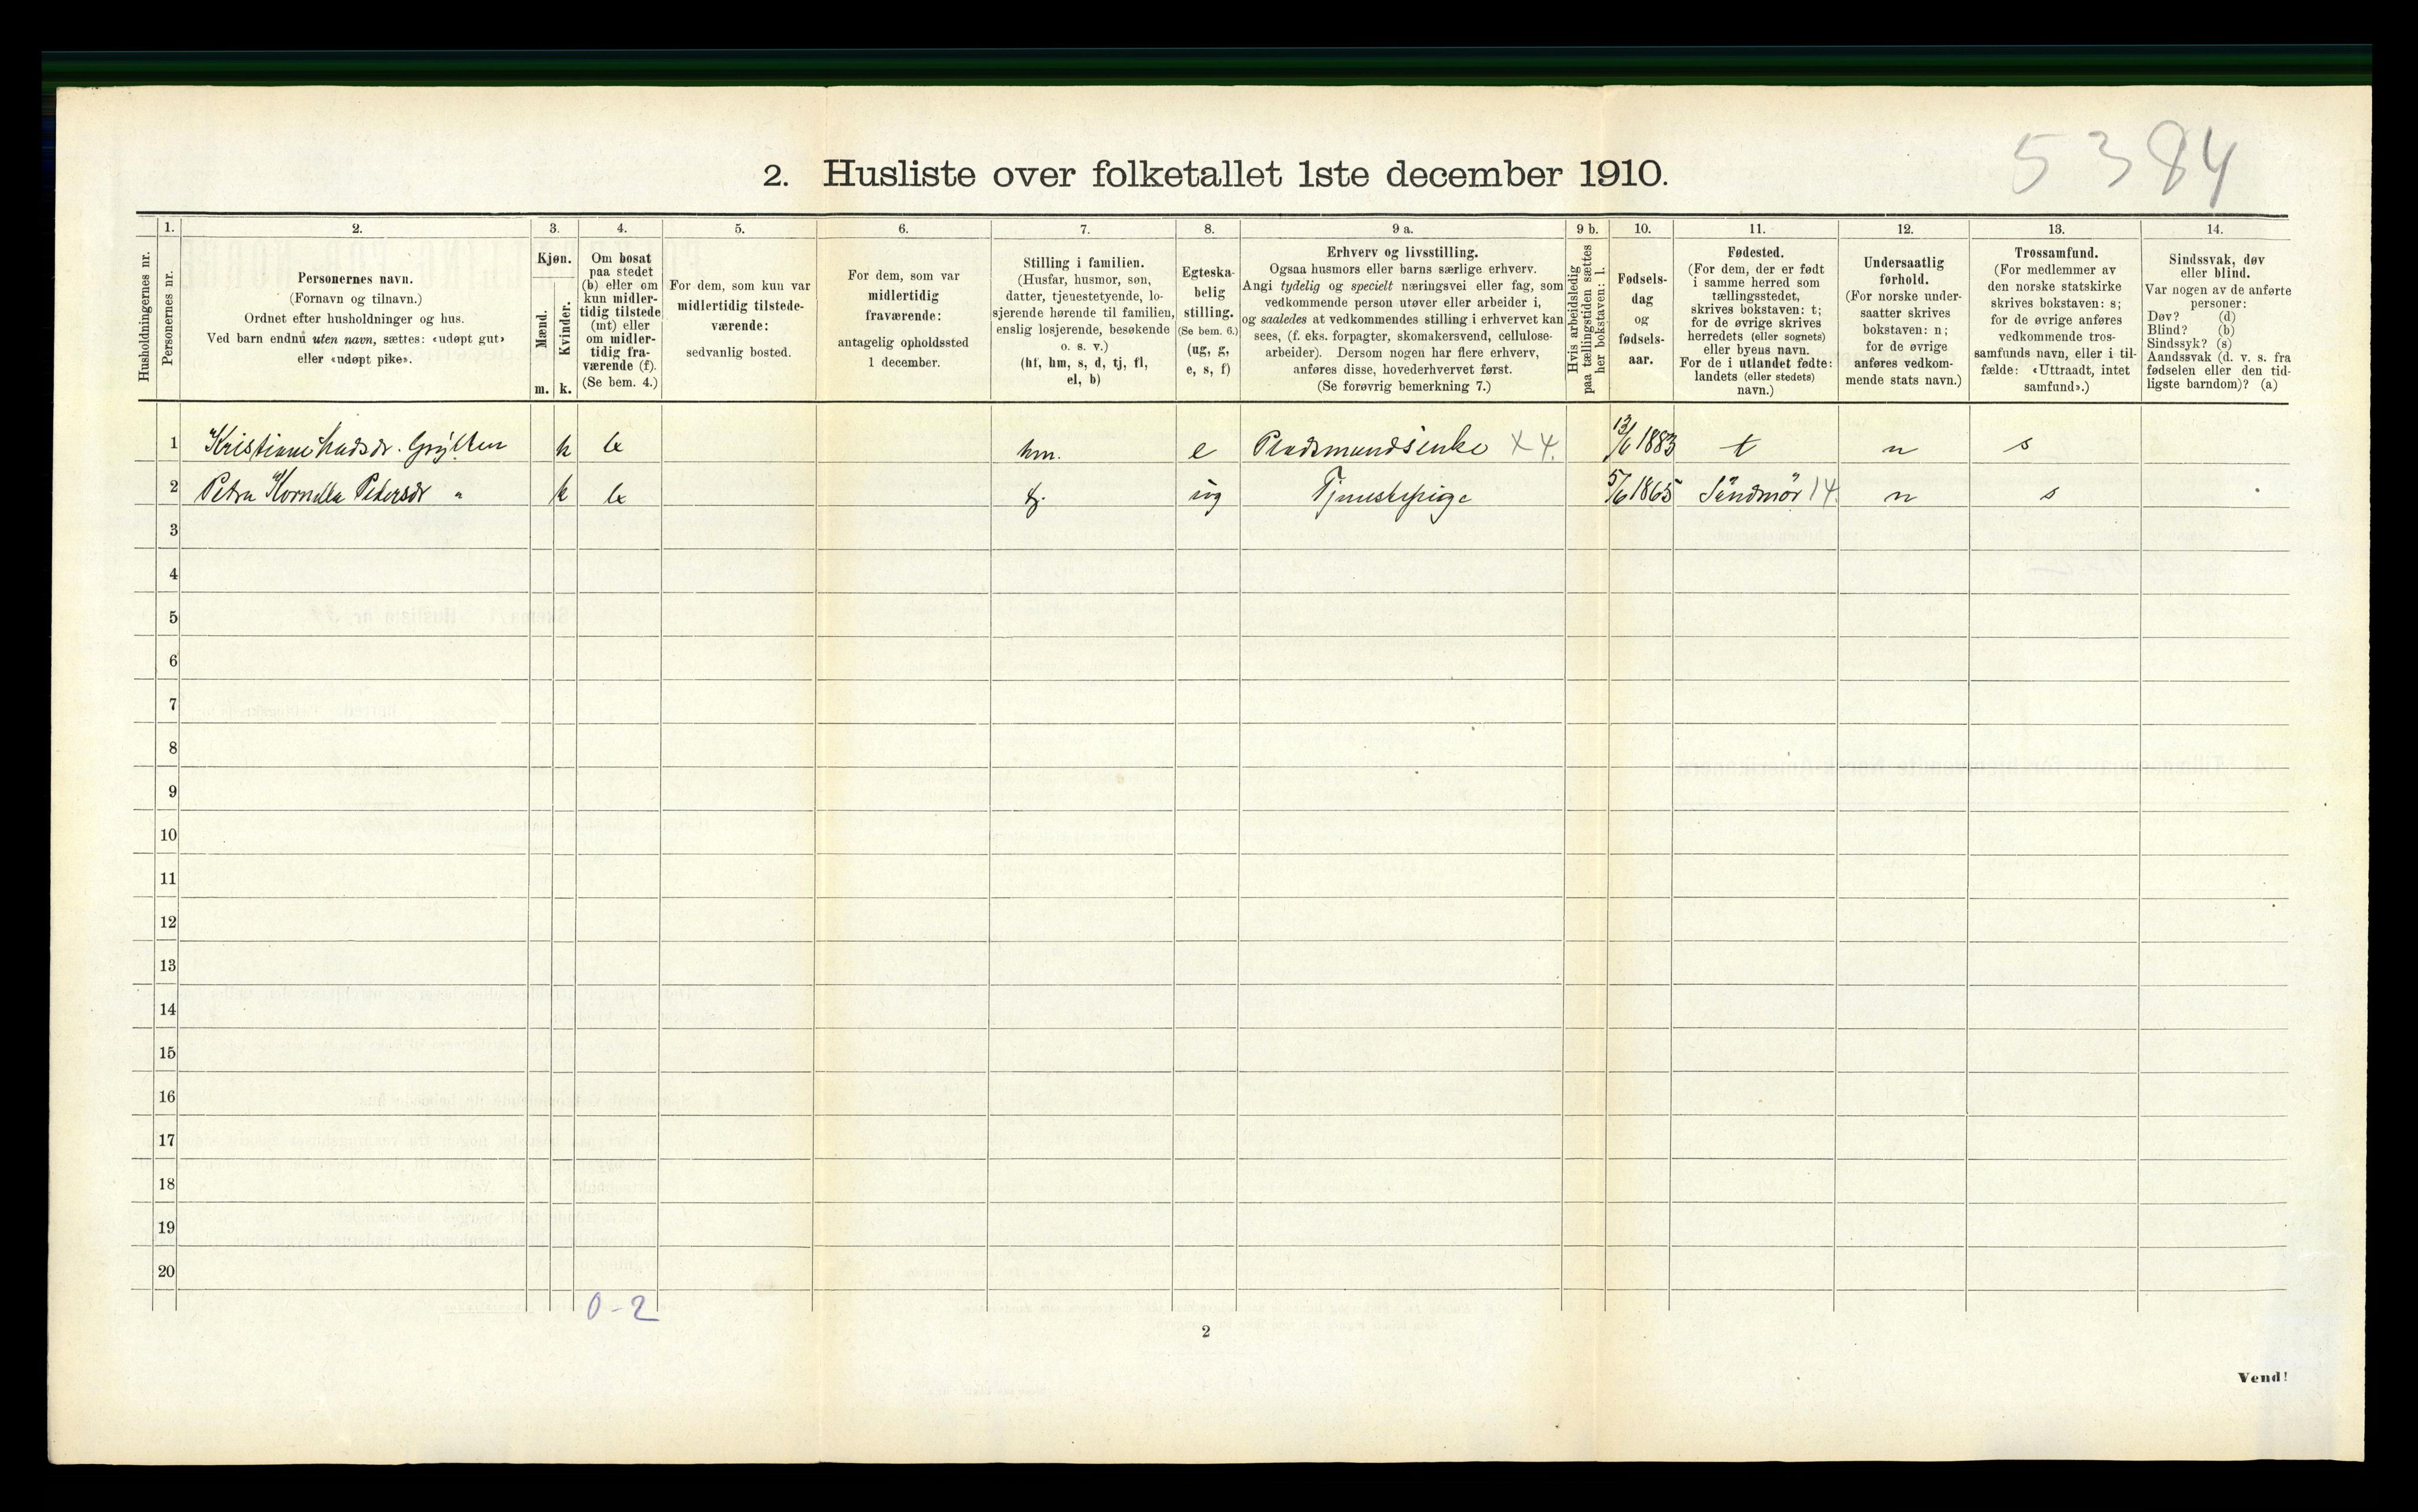 5384
2. Husliste over folketallet 1ste december 1910.
Husholdningernes nr.
1.
Personernes nr.
2.
Personernes navn.
(Fornavn og tilnavn.)
Ordnet efter husholdninger og hus.
Ved barn endnu uten navn, sættes: «udøpt gut»
eller «udøpt pike».
3.
Kjøn.
Mænd.
Kvinder.
m. k.
4.
Om bosat
paa stedet
(b) eller om
kun midler-
tidig tilstede
(mt) eller
om midler-
tidig fra-
værende (f).
(Se bem. 4.)
5.
For dem, som kun var
midlertidig tilstede-
værende:
sedvanlig bosted.
6.
For dem, som var
midlertidig
fraværende:
antagelig opholdssted
1 december.
7.
Stilling i familien.
(Husfar, husmor, søn,
datter, tjenestetyende, lo-
sjerende hørende til familien,
enslig losjerende, besøkende
o. s. v.)
(hf, hm, s, d, tj, fl,
el, b)
8.
Egteska-
belig
stilling.
(Se bem. 6.)
(ug, g,
e, s, f)
9 a.
Erhverv og livsstilling.
Ogsaa husmors eller barns særlige erhverv.
Angi tydelig og specielt næringsvei eller fag, som
vedkommende person utøver eller arbeider i,
og saaledes at vedkommendes stilling i erhvervet kan
sees, (f. eks. forpagter, skomakersvend, cellulose-
arbeider). Dersom nogen har flere erhverv,
anføres disse, hovederhvervet først.
(Se forøvrig bemerkning 7.)
9 b.
Hvis arbeidsledig
paa tællingstiden sættes
her bokstaven: l.
10.
Fødsels-
dag
og
fødsels-
aar.
11.
Fødested.
(For dem, der er født
i samme herred som
tællingsstedet,
skrives bokstaven: t;
for de øvrige skrives
herredets (eller sognets)
eller byens navn.
For de i utlandet fødte:
landets (eller stedets)
navn.)
12.
Undersaatlig
forhold.
(For norske under-
saatter skrives
bokstaven: n;
for de øvrige
anføres vedkom-
mende stats navn.)
13.
Trossamfund.
(For medlemmer av
den norske statskirke
skrives bokstaven: s;
for de øvrige anføres
vedkommende tros-
samfunds navn, eller i til-
fælde: «Uttraadt, intet
samfund».)
14.
Sindssvak, døv
eller blind.
Var nogen av de anførte
personer:
Døv? (d)
Blind? (b)
Sindssyk? (s)
Aandssvak (d. v. s. fra
fødselen eller den tid-
ligste barndom)? (a)
1 Kristiane Grytten k b hm. e X 4. 13/6 1883 t n s
2 Petra Pedersdr " k b tj. ug Tjenestepige 5/6 1865 Söndmör 14. n s
3
4
5
6
7
8
9
10
11
12
13
14
15
16
17
18
19
20
0-2
2
Vend!